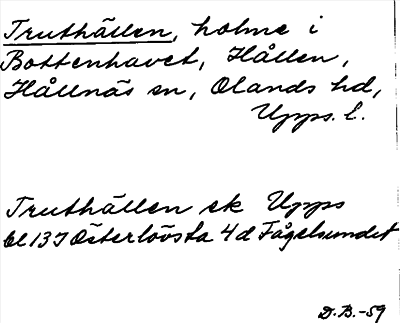 Truthällen, holme i
Bottenhavet, Hållen,
Hållnäs sn, Olands hd,
Upps. l.
Truthällen ek Upps
bl 13 J Österlövsta 4 d Fågelsundet
D.B.-59